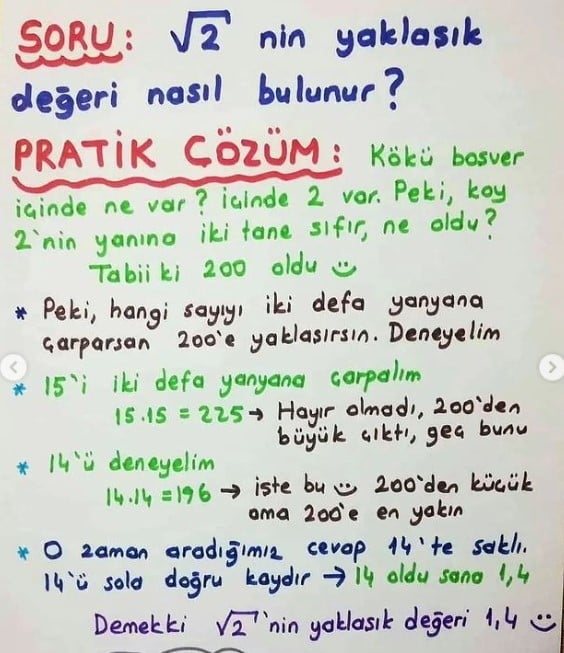 SORU: √2 nin yaklaşık
değeri nasıl bulunur?
PRATİK ÇÖZÜM: Kökü boşver
içinde ne var? içinde 2 var. Peki, koy
2'nin yanına iki tane sıfır, ne oldu?
Tabii ki 200 oldu
* Peki, hangi sayıyı iki defa yanyana
çarparsan 200'e yaklaşırsın. Deneyelim
* 15'i iki defa yanyana çarpalım
15.15 = 225 → Hayır olmadı, 200'den
büyük çıktı, geç bunu
* 14'ü deneyelim
14.14 = 196 → işte bu 200'den küçük
ama 200'e en yakın
* O zaman aradığımız cevap 14'te saklı.
14'ü sola doğru kaydır → 14 oldu sana 1,4
Demekki √2'nin yaklaşık değeri 1,4